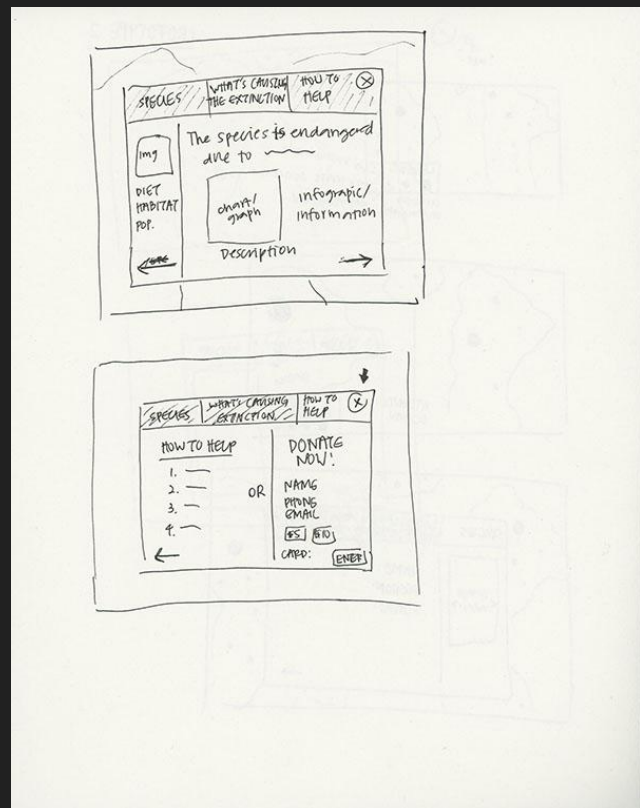 SPECIES
WHAT'S CAUSING
THE EXTINCTION
HOW TO
HELP
X
img
DIET
HABITAT
POP.
The species is endangered
due to
chart/
graph
infograpic/
information
Description
SPECIES
WHAT'S CAUSING
EXTINCTION
HOW TO
HELP
X
HOW TO HELP
1.
2.
3.
4.
OR
DONATE
NOW!
NAME
PHONE
EMAIL
$5 $10
CARD: ENTER